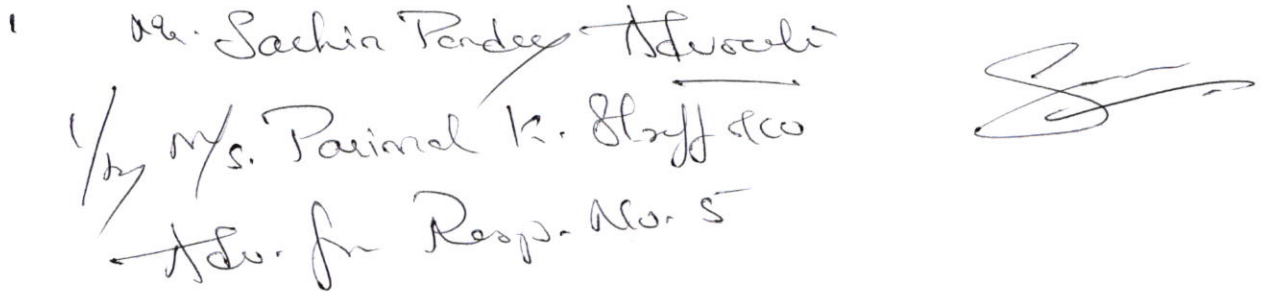 Mr. Sachin Pandey Advocate
i/by M/s. Parimal K. Shroff & Co
Adv. for Resp. No. 5